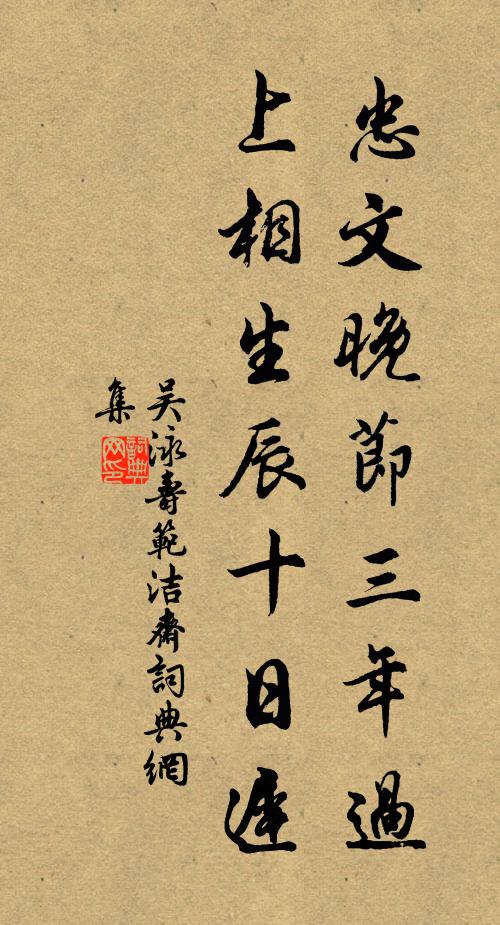 忠文晚節三年過
上相生辰十日遲
吴泳壽範潔齋詞典網
集
詞典网印